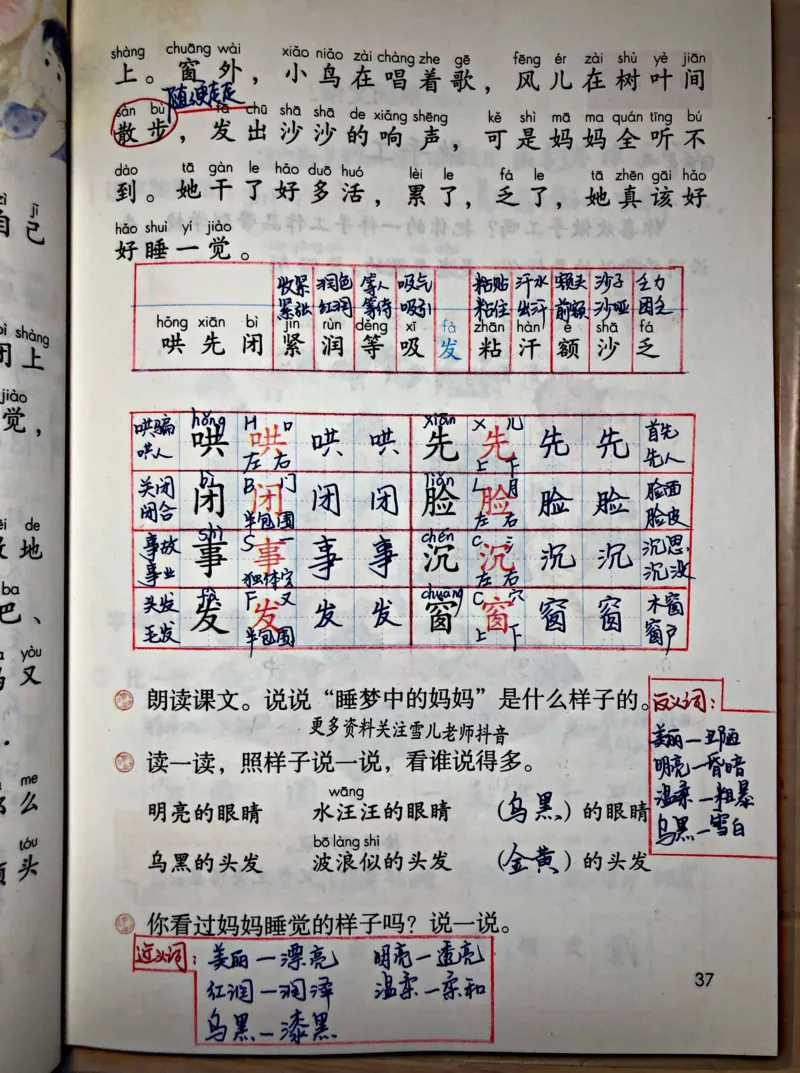 shàng chuāng wài xiǎo niǎo zài chàng zhe gē fēng ér zài shù yè jiān
上。窗外，小鸟在唱着歌，风儿在树叶间
随便走走
sàn bù fā chū shā shā de xiǎng shēng kě shì mā ma quán tīng bú
散步，发出沙沙的响声，可是妈妈全听不
dào tā gàn le hǎo duō huó lèi le fá le tā zhēn gāi hǎo
到。她干了好多活，累了，乏了，她真该好
hǎo shuì yí jiào
好睡一觉。
收紧 润色 等人 吸气 粘贴 汗水 额头 沙子 乏力
紧张 红润 等待 吸引 粘住 出汗 前额 沙哑 困乏
hǒng xiān bì jǐn rùn děng xī fà zhān hàn é shā fá
哄先闭紧润等吸发粘汗额沙乏
hǒng H 口 xiān X 儿
哄骗 哄人 哄 哄 哄 哄 左右 先 先 先 先 上下 首先 先人
bì B 门 liǎn L 月
关闭 闭合 闭 闭 闭 闭 半包围 脸 脸 脸 脸 左右 脸面 脸皮
shì S 一 chén C 氵
事故 事业 事 事 事 事 独体字 沉 沉 沉 沉 左右 沉思 沉没
fà F 又 chuāng C 穴
头发 毛发 发 发 发 发 半包围 窗 窗 窗 窗 上下 木窗 窗户
朗读课文。说说“睡梦中的妈妈”是什么样子的。
更多资料关注雪儿老师抖音
读一读，照样子说一说，看谁说得多。
wāng
明亮的眼睛 水汪汪的眼睛 （乌黑）的眼睛
bō làng shì
乌黑的头发 波浪似的头发 （金黄）的头发
反义词：
美丽—丑陋
明亮—昏暗
温柔—粗暴
乌黑—雪白
你看过妈妈睡觉的样子吗？说一说。
近义词：美丽—漂亮 明亮—透亮
红润—润泽 温柔—柔和
乌黑—漆黑
37